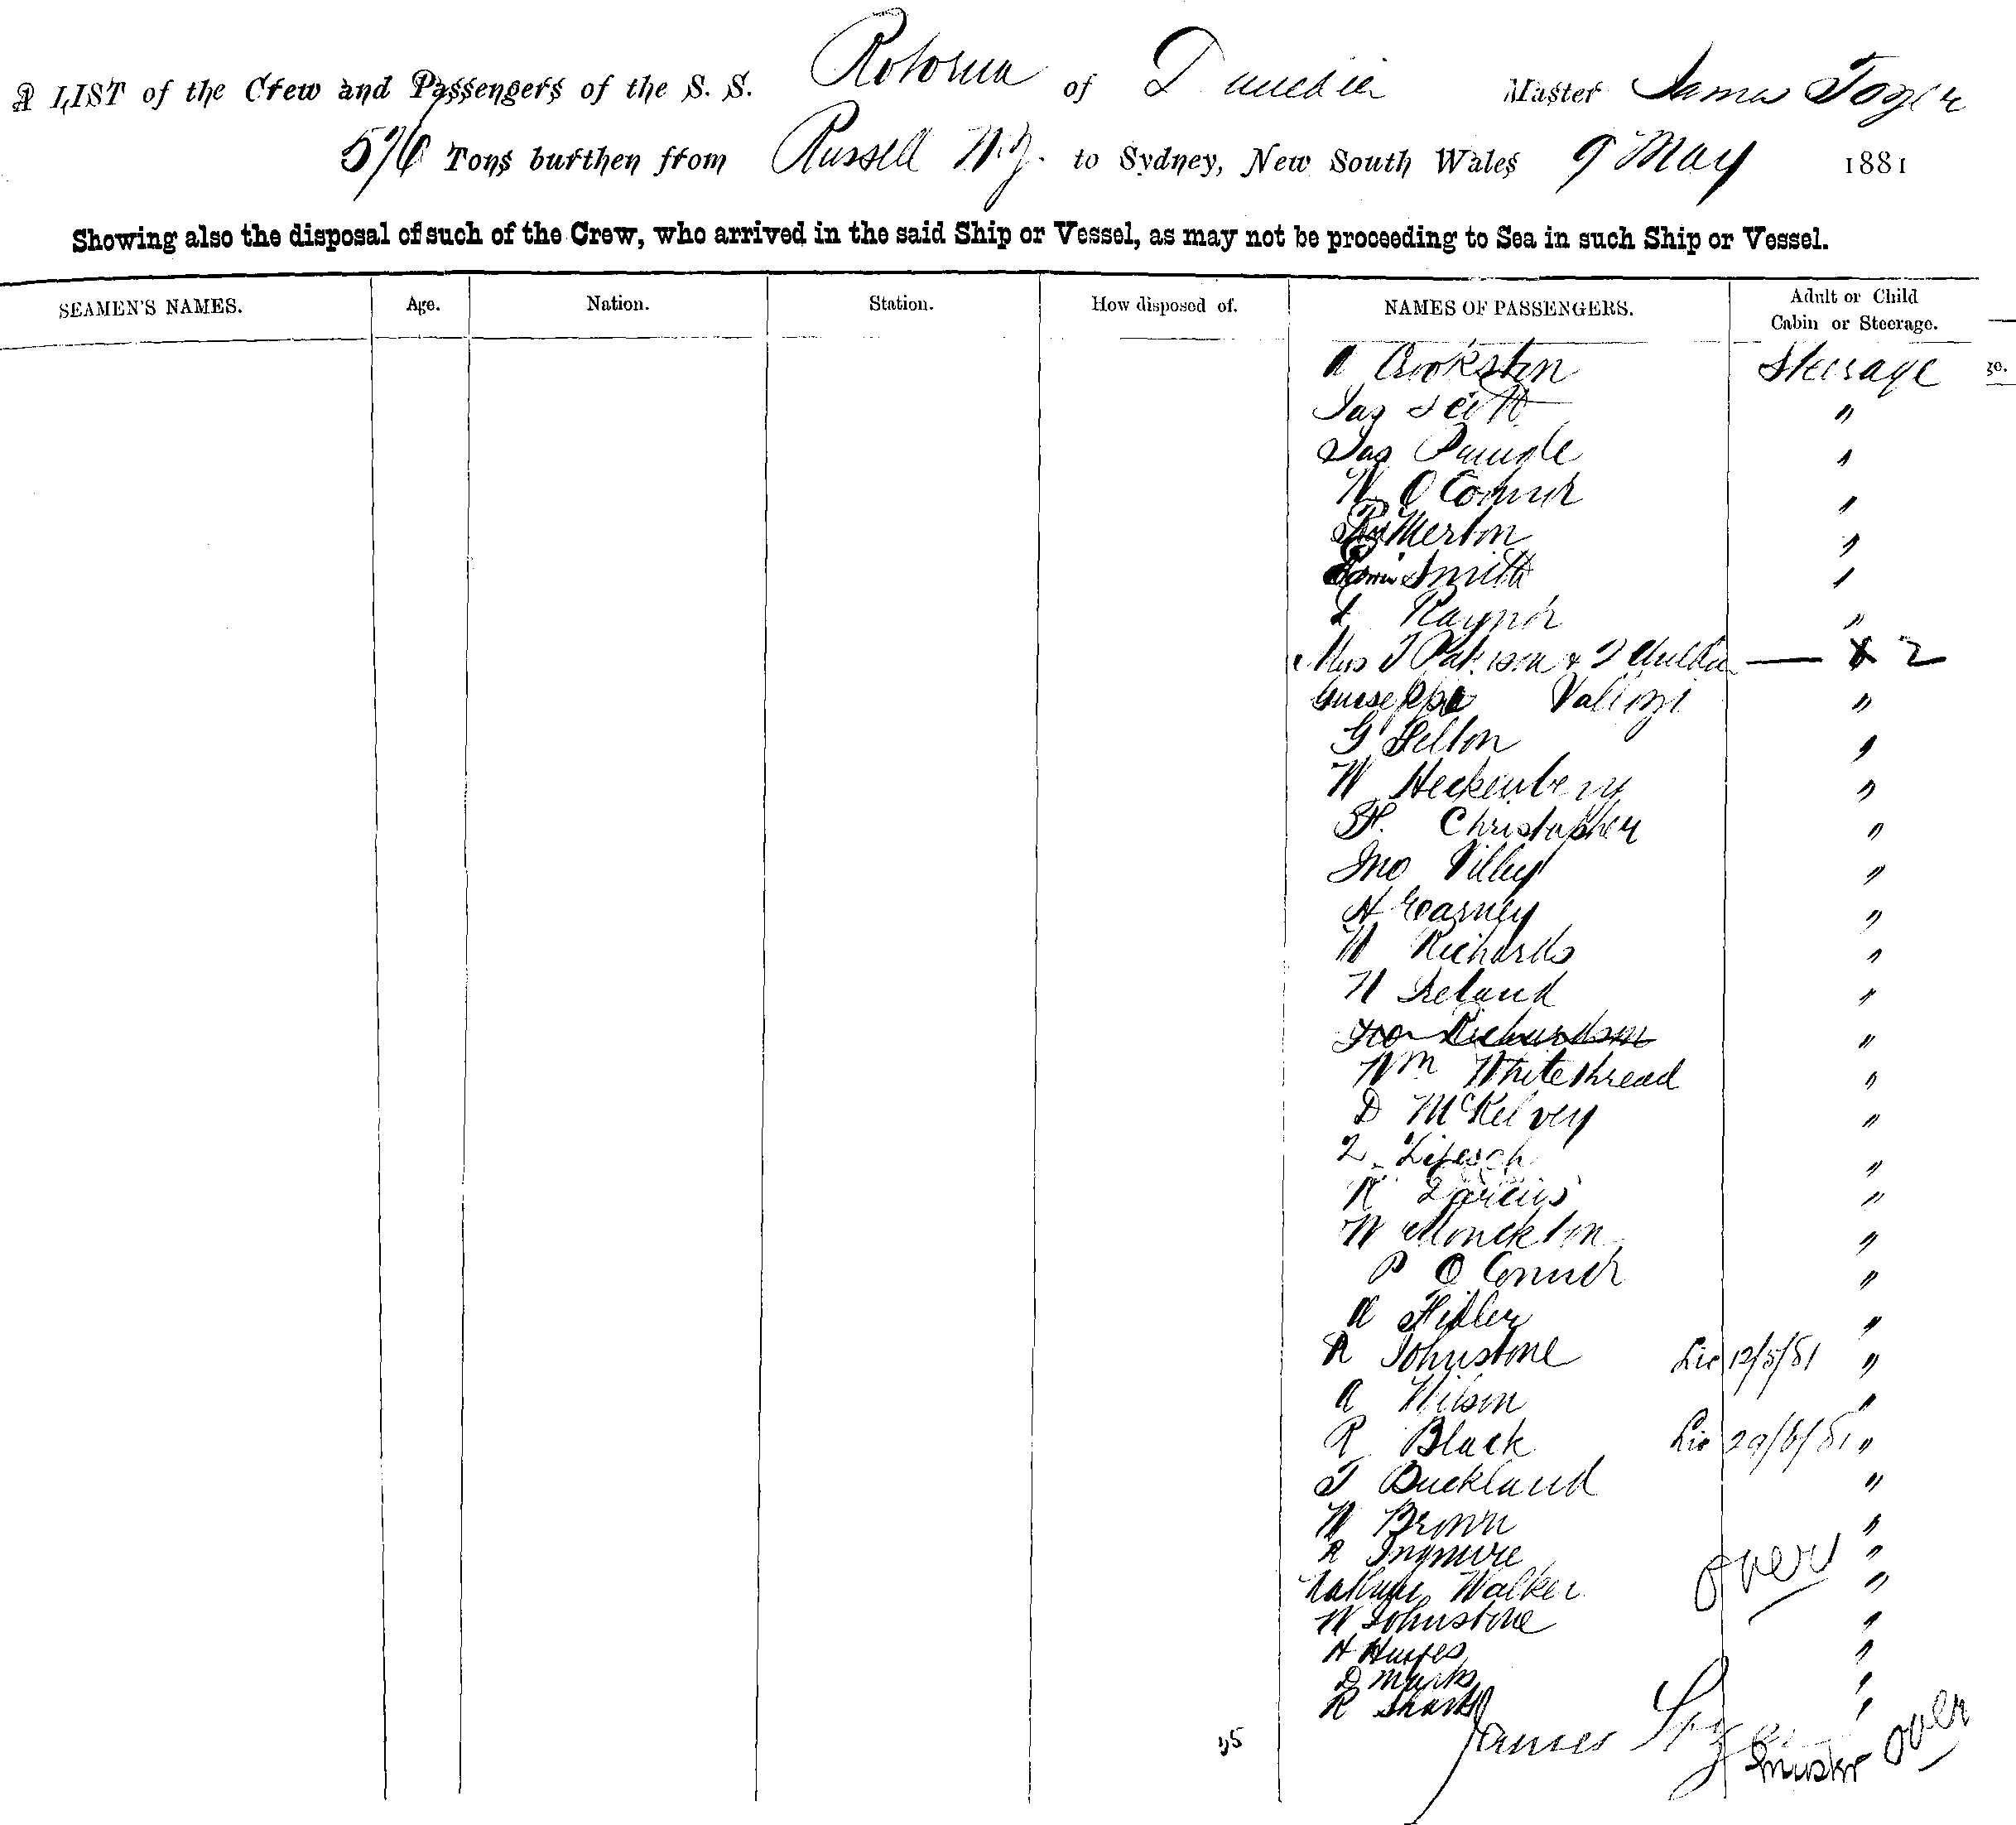 A LIST of the Crew and Passengers of the S. S. Rotorua of Dunedin Master James Tozer
576 Tons burthen from Russell N.Z. to Sydney, New South Wales 9 May 1881
Showing also the disposal of such of the Crew, who arrived in the said Ship or Vessel, as may not be proceeding to Sea in such Ship or Vessel.
SEAMEN'S NAMES. Age. Nation. Station. How disposed of. NAMES OF PASSENGERS. Adult or Child
Cabin or Steerage.
A Crookston Steerage
ge.
Jas Scott "
Jas Pringle "
W O Connor "
Merton "
Smith "
Raynor "
Mrs T & 2 — X 2
Guiseppe "
G Felton "
W Heckenberg "
H. Christopher "
Jno Villey "
H Carney "
W Richards "
W Ireland "
Geo Richardson "
Wm Whitethread "
D McKelvey "
L "
R "
W Monckton "
P O Connor "
A Hidler "
R Johnstone Lic 12/5/81 "
A Wilson "
R Black Lic 29/6/81 "
T Buckland "
W Brown "
R "
over
Walker "
W Johnstone "
H "
D Marks "
R "
35 James Tozer
Master over